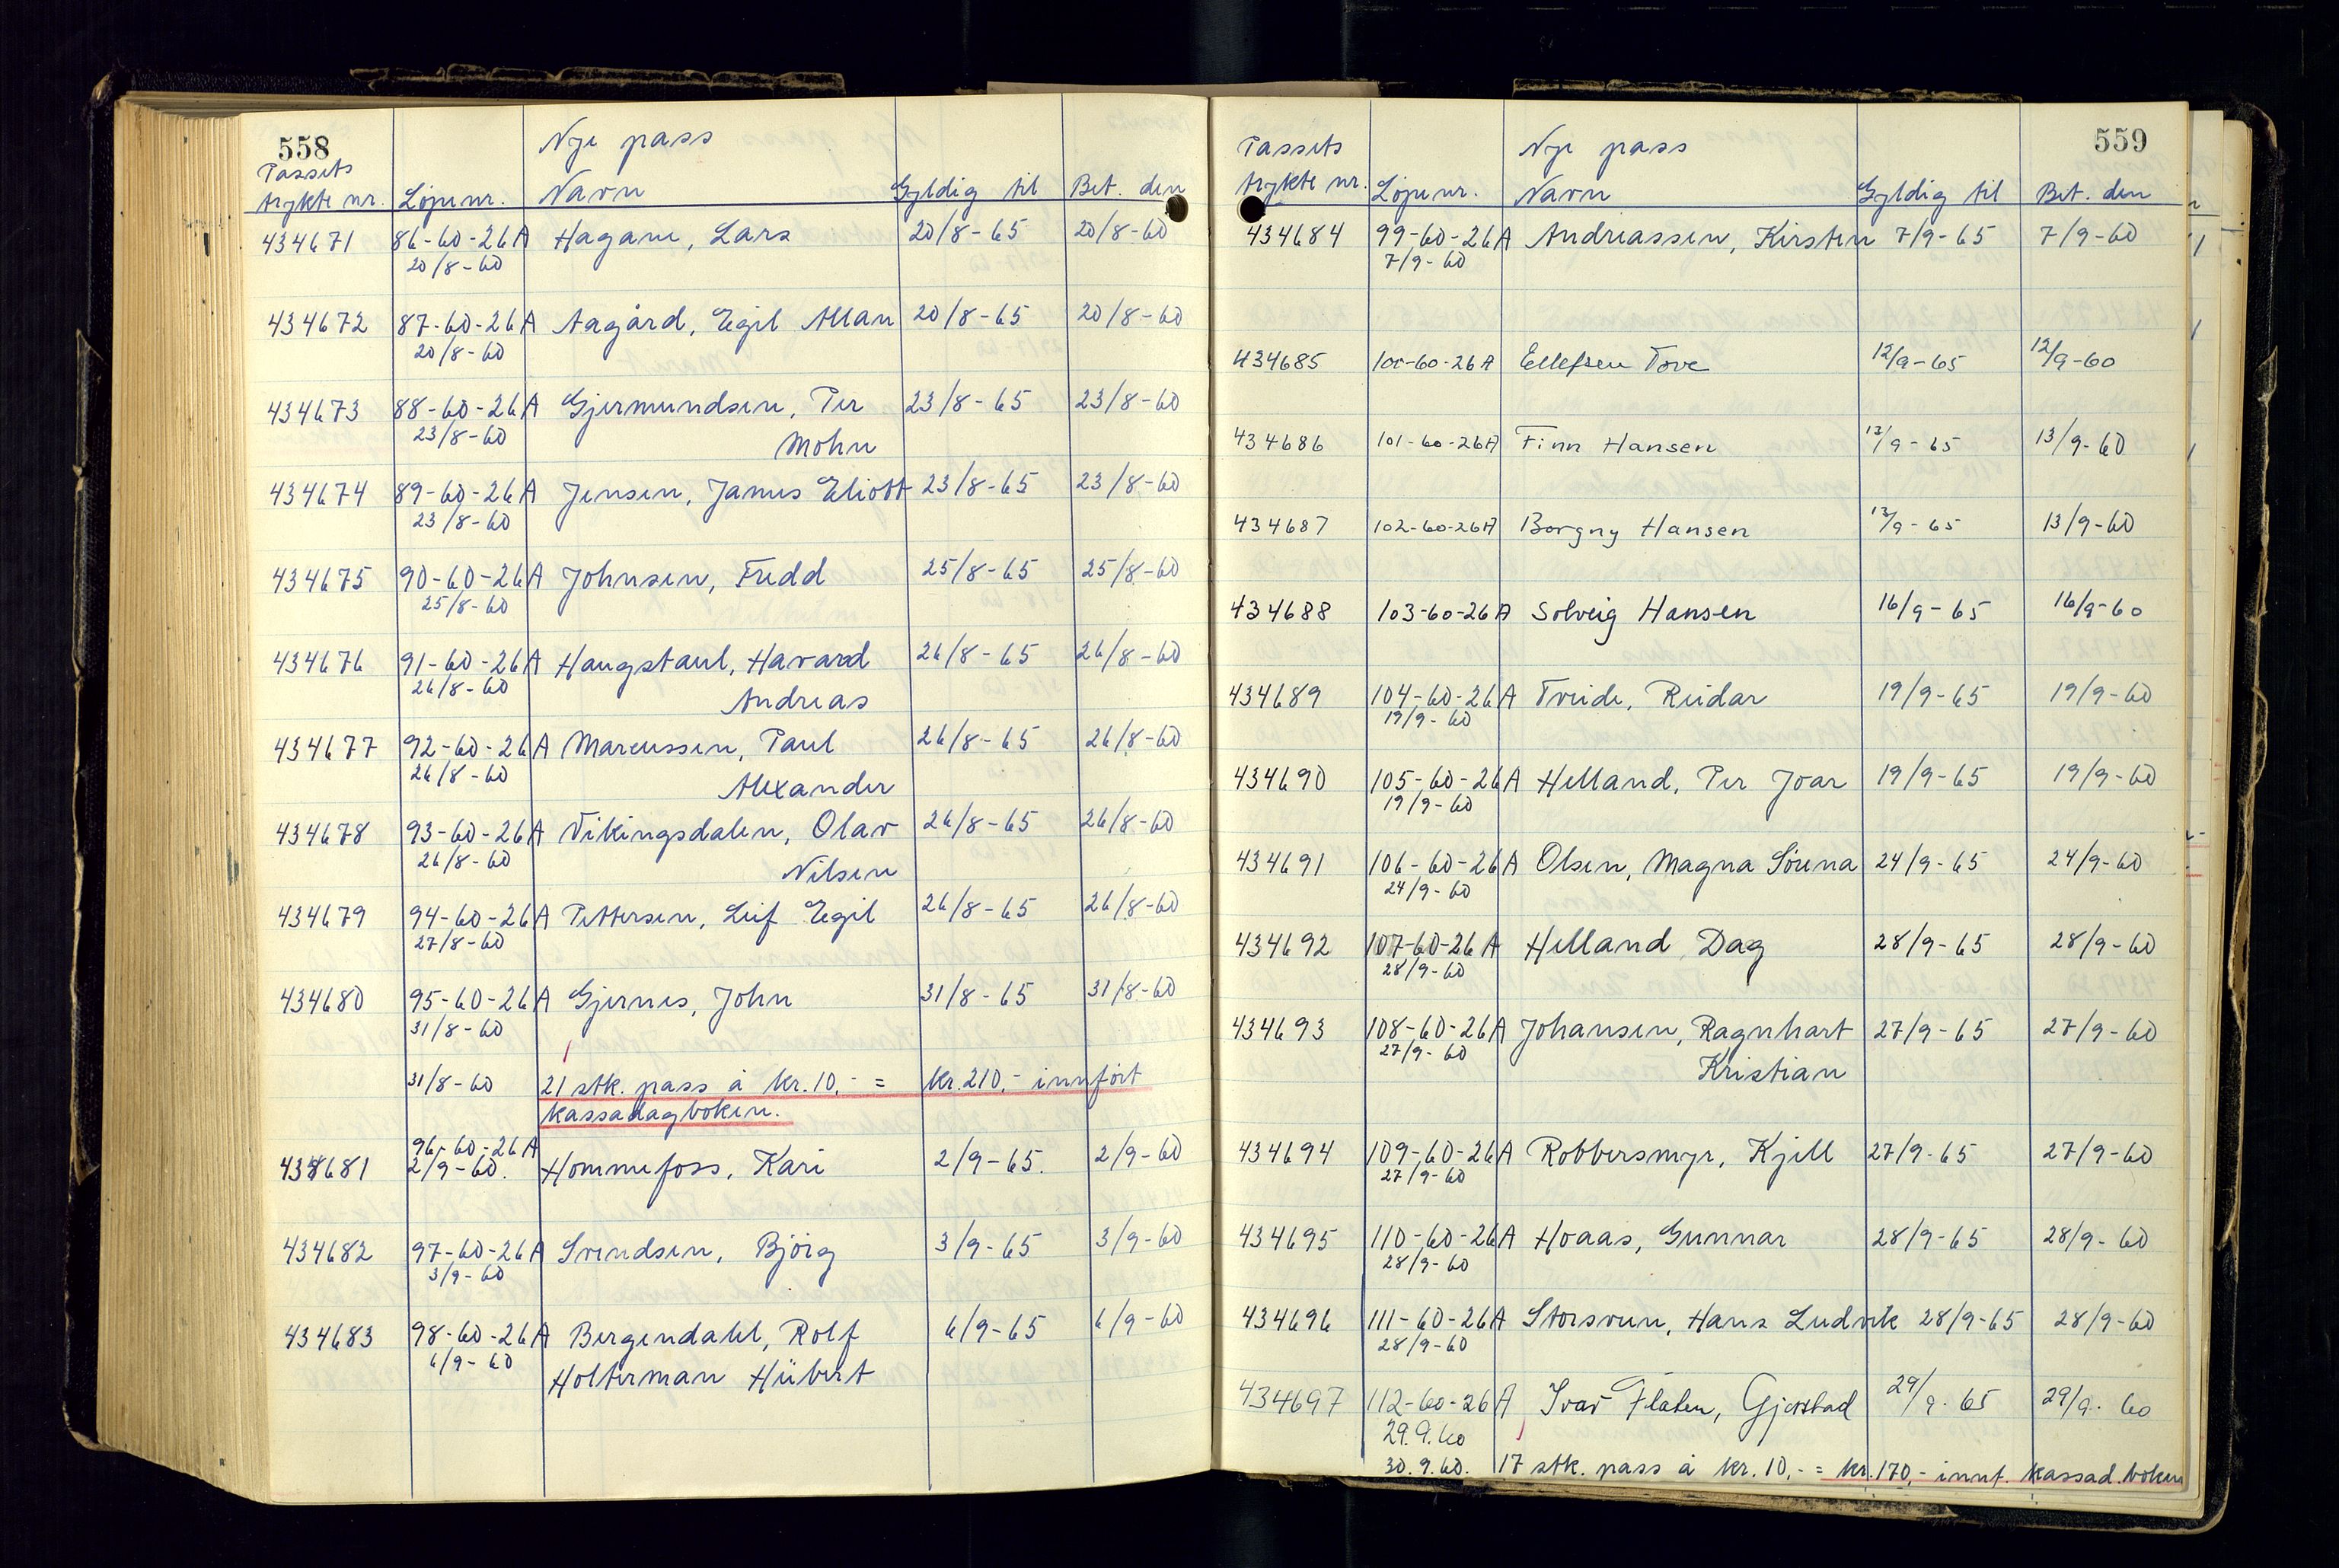 558
Nye pass
Passets
trykte nr. Løpenr. Navn Gyldig til Bet. den
434671 86-60-26A Hagane, Lars 20/8-65 20/8-60
20/8-60
434672 87-60-26A Aagård, Egil Allan 20/8-65 20/8-60
20/8-60
434673 88-60-26A Gjermundsen, Per 23/8-65 23/8-60
23/8-60 Mohn
434674 89-60-26A Jensen, James Eliott 23/8-65 23/8-60
23/8-60
434675 90-60-26A Johnsen, Fredd 25/8-65 25/8-60
25/8-60
434676 91-60-26A Haugstaul, Havard 26/8-65 26/8-60
26/8-60 Andreas
434677 92-60-26A Marcussen, Paul 26/8-65 26/8-60
26/8-60 Alexander
434678 93-60-26A Vikingsdalen, Olav 26/8-65 26/8-60
26/8-60 Nilsen
434679 94-60-26A Pettersen, Leif Egil 26/8-65 26/8-60
27/8-60
434680 95-60-26A Gjernes, John 31/8-65 31/8-60
31/8-60
31/8-60 21 stk. pass à kr. 10,- = kr. 210,- innført
kassadagboken.
96-60-26A
434681 2/9-60. Hommefoss, Kari 2/9-65. 2/9-60
434682 97-60-26A Svendsen, Bjørg 3/9-65 3/9-60
3/9-60
434683 98-60-26A Bergendahl, Rolf 6/9-65 6/9-60
6/9-60 Holterman Hübert
559
Passets Nye pass
trykte nr. Løpenr. Navn Gyldig til Bet. den
434684 99-60-26A Andreassen, Kirsten 7/9-65 7/9-60
7/9-60
434685 100-60-26A Ellefsen Tove 12/9-65 12/9-60
434686 101-60-26A Finn Hansen 13/9-65 13/9-60
434687 102-60-26A Borgny Hansen 13/9-65 13/9-60
434688 103-60-26A Solveig Hansen 16/9-65 16/9-60
434689 104-60-26A Tveide, Reidar 19/9-65 19/9-60
19/9-60
434690 105-60-26A Helland, Per Joar 19/9-65 19/9-60
19/9-60
434691 106-60-26A Olsen, Magna Sørena 24/9-65 24/9-60
24/9-60
434692 107-60-26A Helland, Dag 28/9-65 28/9-60
28/9-60
434693 108-60-26A Johansen, Ragnhart 27/9-65 27/9-60
27/9-60 Kristian
434694 109-60-26A Robbersmyr, Kjell 27/9-65 27/9-60
27/9-60
434695 110-60-26A Hoaas, Gunnar 28/9-65 28/9-60
28/9-60
434696 111-60-26A Storsveen, Hans Ludvik 28/9-65 28/9-60
28/9-60
434697 112-60-26A Ivar Flaten, Gjerstad 29/9. 65 29/9. 60
29.9.60
30.9.60. 17 stk. pass à kr. 10,- = kr. 170,- innf. kassad.boken